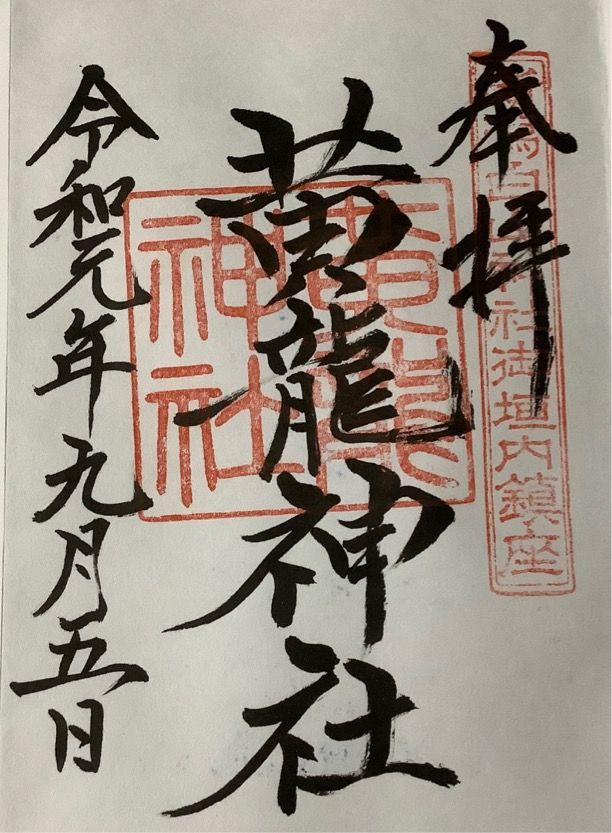 奉拝
社御垣内鎮座
黄龍神社
黄龍神社
令和元年九月五日